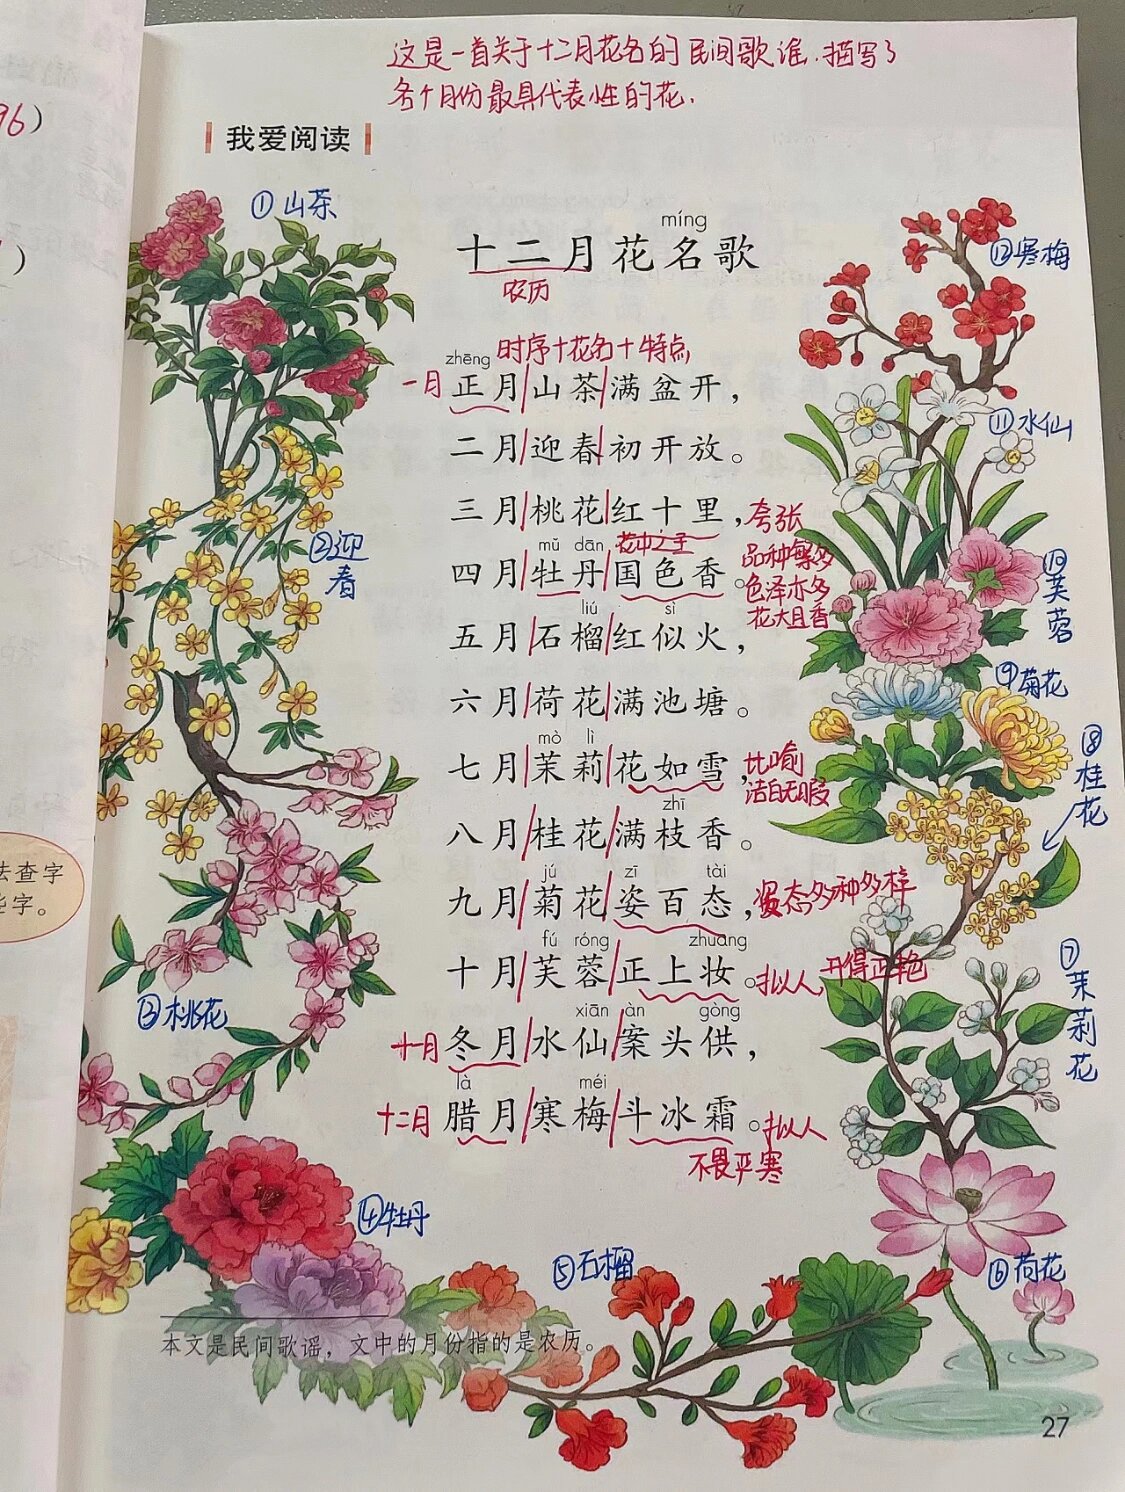 这是一首关于十二月花名的民间歌谣.描写了
各个月份最具代表性的花.
96)
)
我爱阅读
①山茶
míng
十二月花名歌
农历
⑫寒梅
时序+花名+特点
zhēng
一月 正月山茶满盆开，
⑪水仙
二月迎春初开放。
三月桃花红十里， 夸张
②迎春
mǔ dān 花中之王
四月牡丹国色香。 品种繁多
色泽亦多
花大且香
⑩芙蓉
liú sì
五月石榴红似火，
⑨菊花
六月荷花满池塘。
mò lì
七月茉莉花如雪， 比喻
洁白无暇
⑧桂花
zhī
八月桂花满枝香。
法查字
些字。
jú zī tài
九月菊花姿百态， 姿态多种多样
fú róng zhuāng
十月芙蓉正上妆。 拟人,开得正艳
⑦茉莉花
③桃花
xiān àn gòng
十一月 冬月水仙案头供，
là méi
十二月 腊月寒梅斗冰霜。 拟人
不畏严寒
④牡丹
⑤石榴
⑥荷花
本文是民间歌谣，文中的月份指的是农历。
27